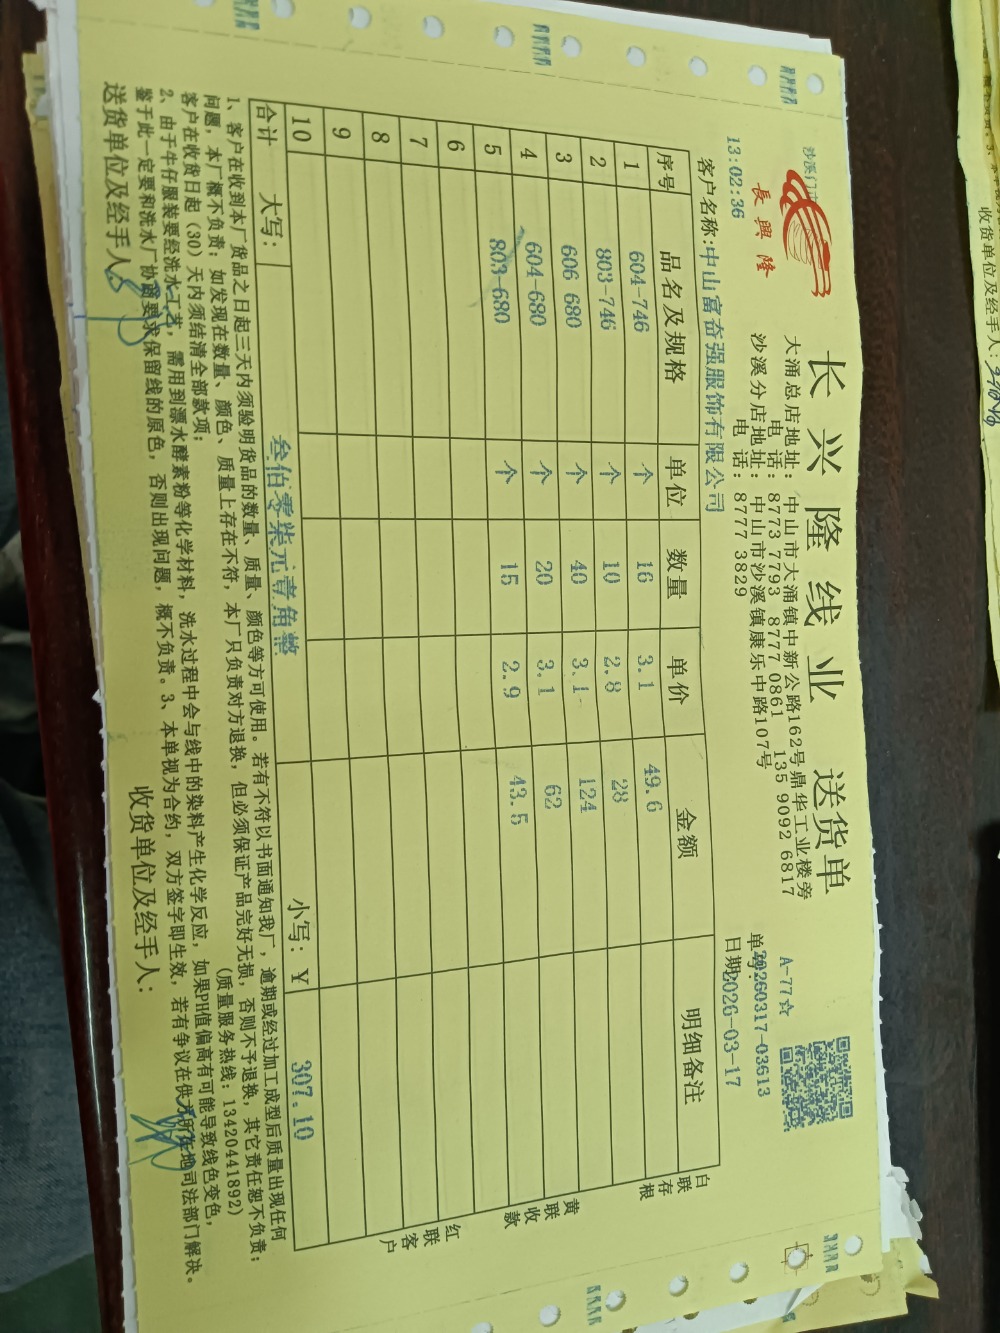 沙溪门市
長興隆
长兴隆线业 送货单
大涌总店地址：中山市大涌镇中新公路162号鼎华工业楼旁
电话：8773 7793 8777 0861 135 9092 6817
沙溪分店地址：中山市沙溪镇康乐中路107号
电话：8777 3829
A-77☆
单号：20260317-03613
日期：2026-03-17
13:02:36
客户名称:中山富奋强服饰有限公司
序号 品名及规格 单位 数量 单价 金额 明细备注
1 604-746 个 16 3.1 49.6
2 803-746 个 10 2.8 28
3 606 680 个 40 3.1 124
4 604-680 个 20 3.1 62
5 803-680 个 15 2.9 43.5
6
7
8
9
10
合计 大写： 叁佰零柒元壹角整 小写：￥ 307.10
白联存根
黄联收款
红联客户
1、客户在收到本厂货品之日起三天内须验明货品的数量、质量、颜色等方可使用。若有不符以书面通知我厂，逾期或经过加工成型后质量出现任何
问题，本厂概不负责；如发现在数量、颜色、质量上存在不符，本厂只负责对方退换，但必须保证产品完好无损，否则不予退换，其它责任恕不负责；
客户在收货日起（30）天内须结清全部款项； （质量服务热线：13420441892）
2、由于牛仔服装要经洗水工艺，需用到漂水酵素粉等化学材料，洗水过程中会与线中的染料产生化学反应，如果PH值偏高有可能导致线色变色，
鉴于此一定要和洗水厂协商要求保留线的原色，否则出现问题，概不负责。3、本单视为合约，双方签字即生效，若有争议在供方所在地司法部门解决。
送货单位及经手人：
收货单位及经手人：
收货单位及经手人：